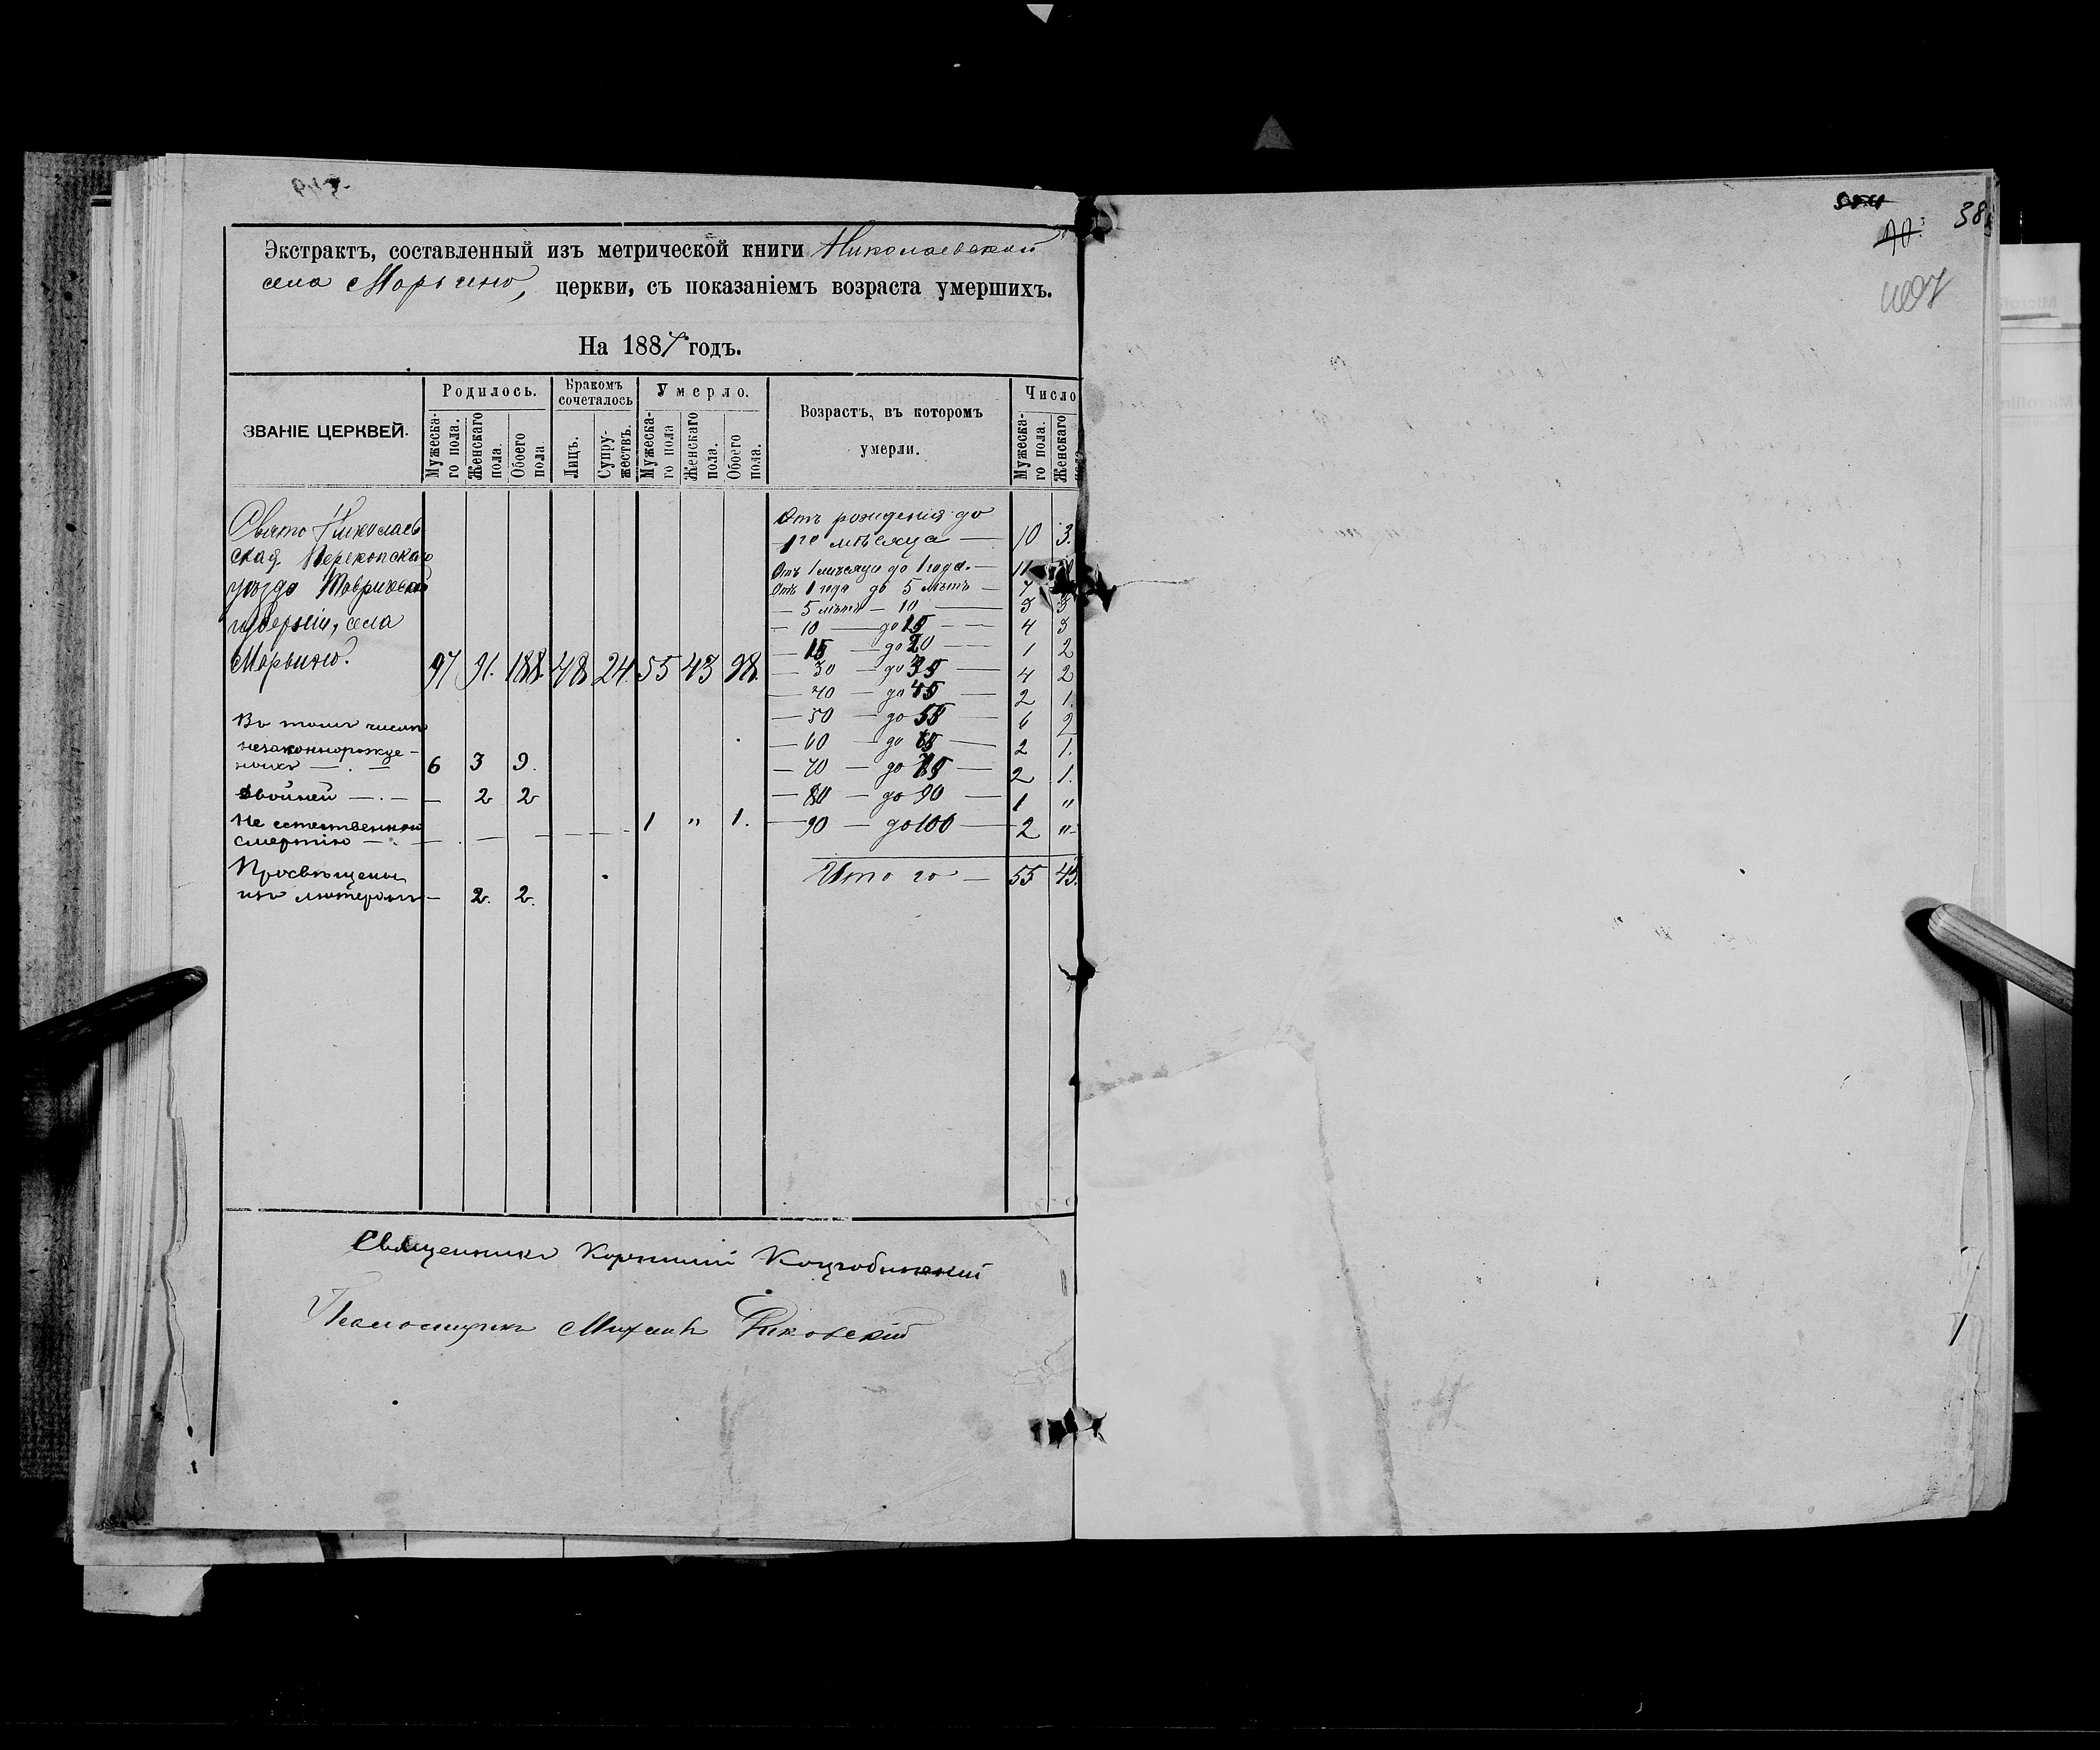 Экстрактъ, составленный изъ метрической книги Николаевской
села Марьино, церкви, съ показаніемъ возраста умершихъ.
На 1887 годъ.
ЗВАНІЕ ЦЕРКВЕЙ.
Родилось.
Мужеска-
го пола.
Женскаго
пола.
Обоего
пола
Бракомъ
сочеталось
Лицъ.
Супру-
жествъ.
Умерло.
Мужеска-
го пола
Женскаго
пола.
Обоего
пола.
Возрастъ, въ которомъ
умерли.
Число
Мужеска-
го пола.
Женскаго
Свято Николаев-
ская Перекопскаго
уѣзда Таврической
губерніи, села
Марьино. 97 91. 188. 48 24. 55 43 98.
Въ томъ числѣ
незаконнорожде-
ныхъ — . — 6 3 9.
Двойней — . — — 2 2
Не естественной
смертію — 1 " 1.
Просвѣщены
изъ лютеранъ — 2. 2.
Отъ рожденія до
1го мѣсяца — 10 3.
Отъ 1 мѣсяца до 1 года. — 11
Отъ 1 года до 5 лѣтъ — 7
— 5 лѣтъ — 10 — 3 3
— 10 — до 15 — 4 3
— 15 — до 20 — 1 2
— 30 — до 35 — 4 2
— 40 — до 45 — 2 1.
— 50 — до 55 — 6 2
— 60 — до 65 — 2 1.
— 70 — до 75 — 2 1.
— 80 — до 90 — 1 "
— 90 — до 100 — 2 "
Итого — 55 43.
Священникъ Корнилій
Псаломщикъ Михаилъ
38